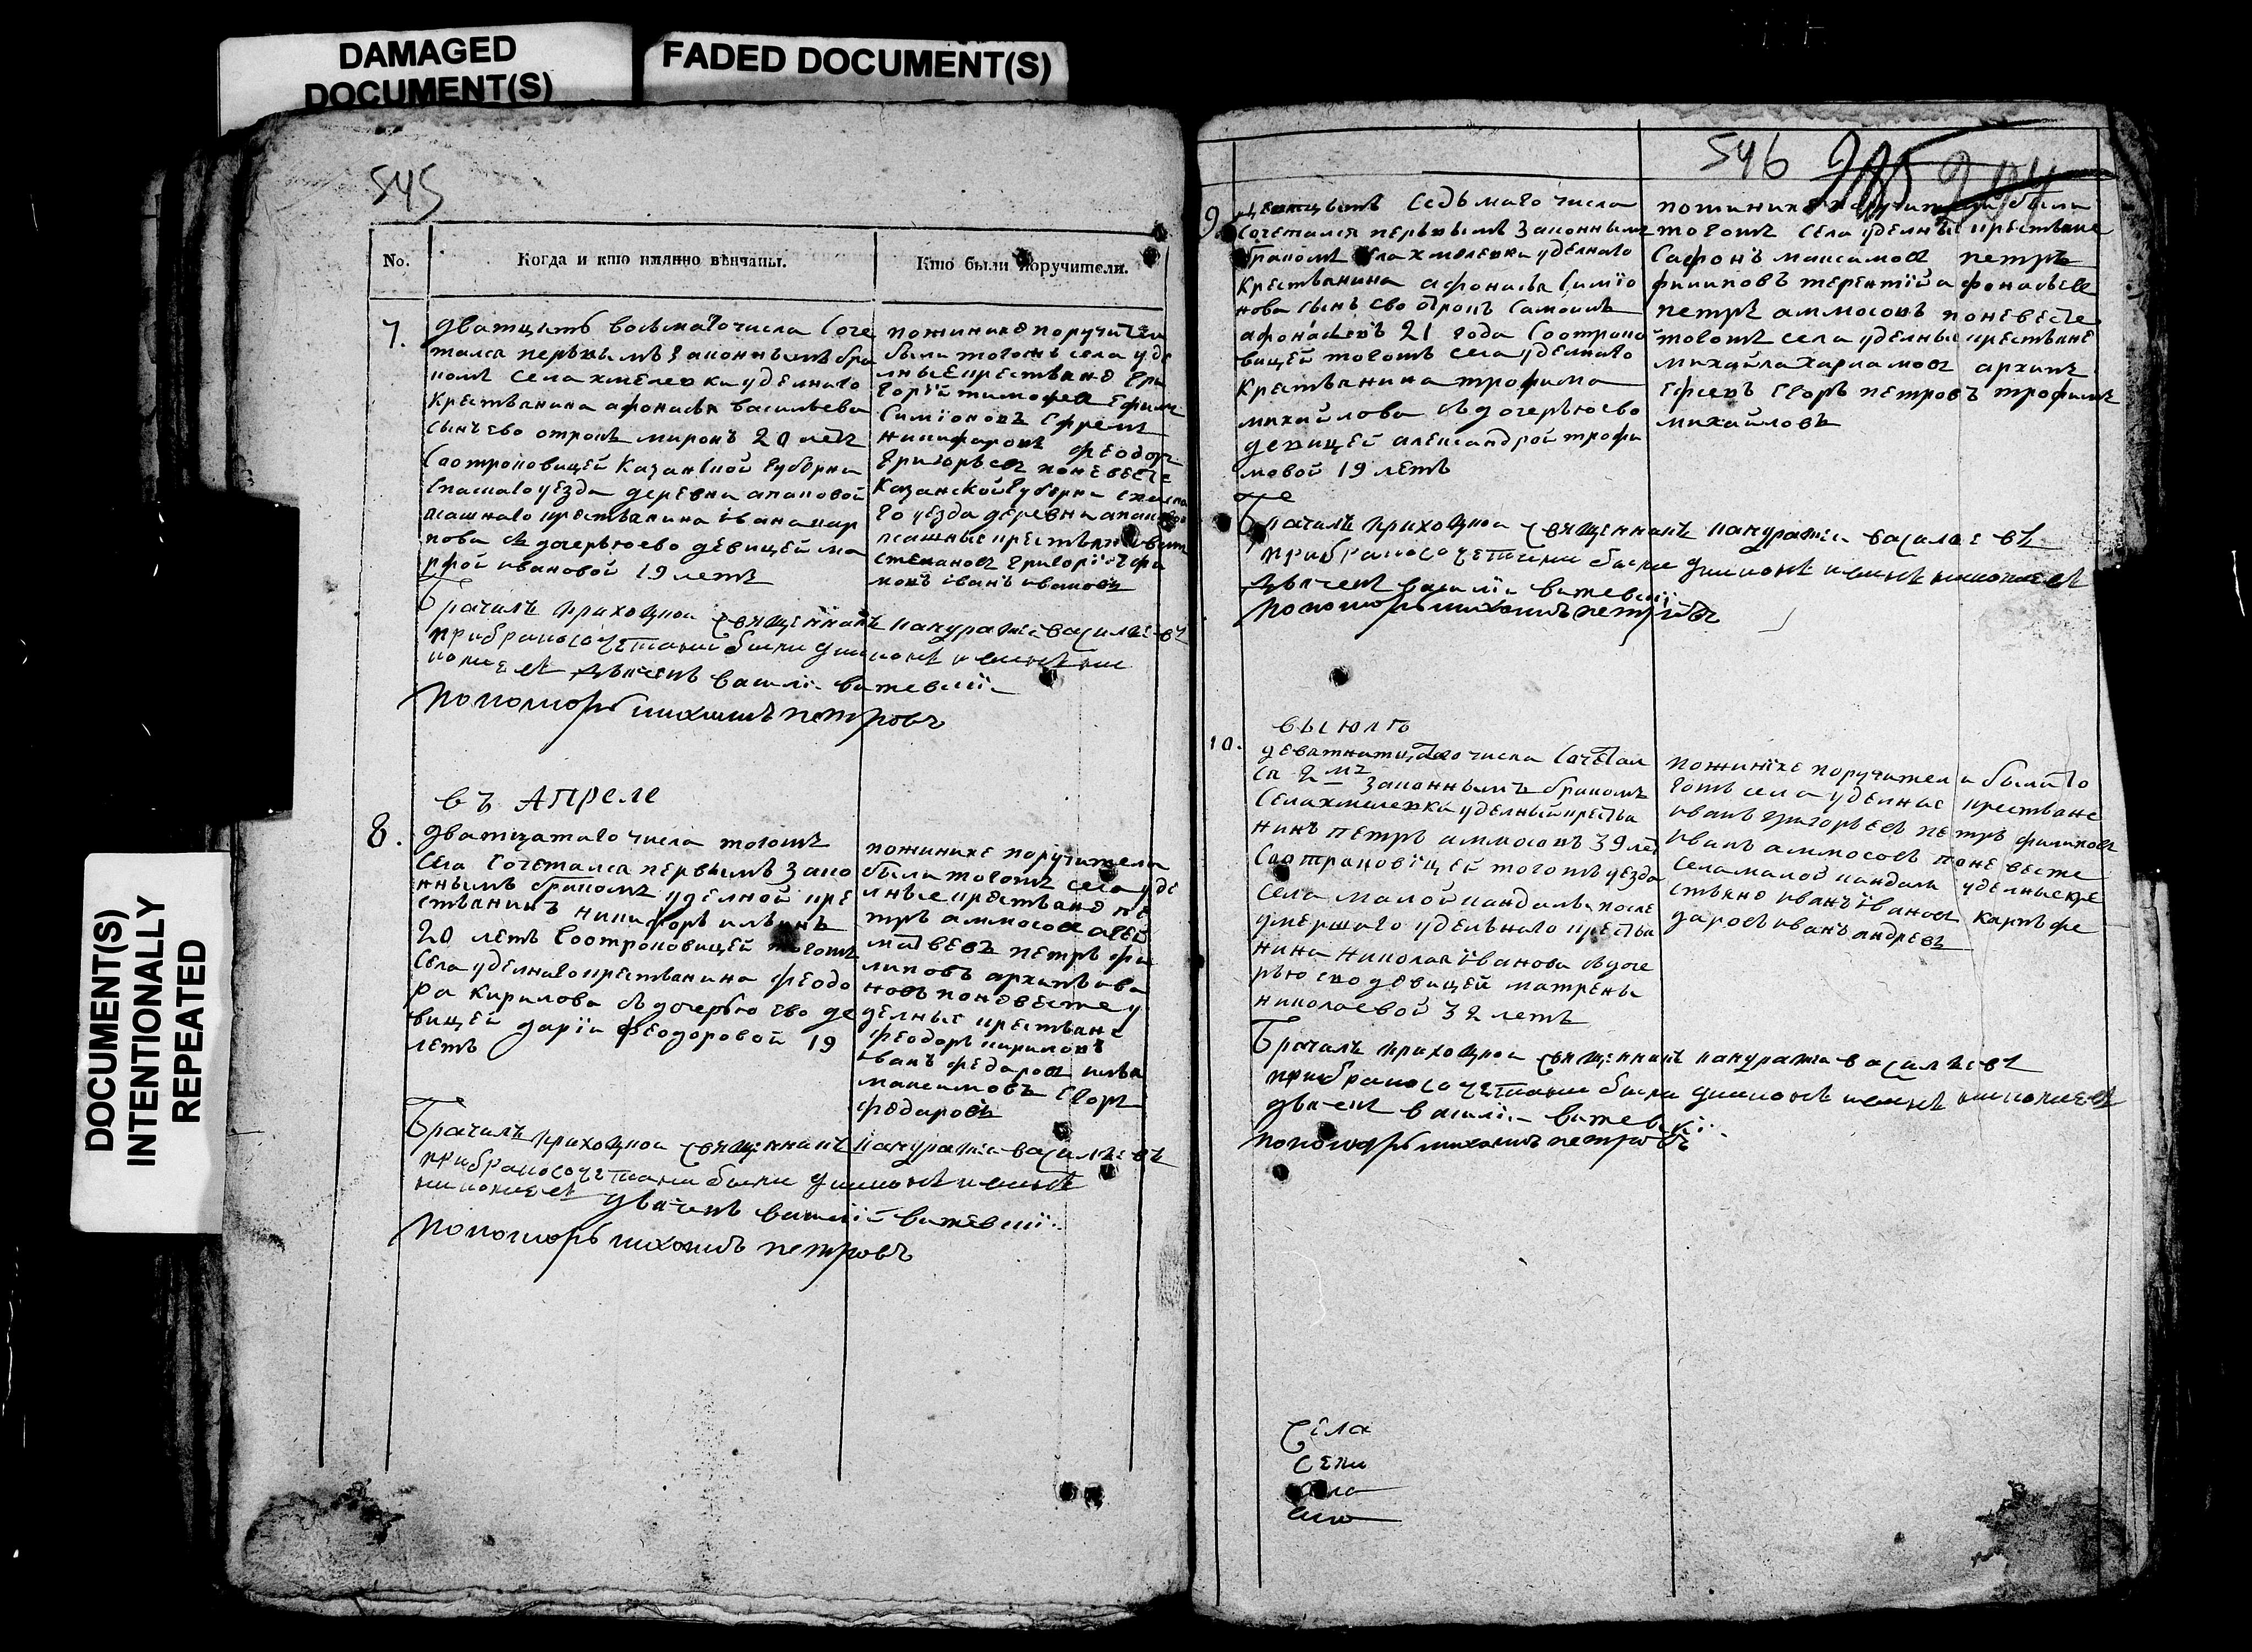 DAMAGED
DOCUMENT(S)
FADED DOCUMENT(S)
DOCUMENT(S)
INTENTIONALLY
REPEATED
545
No.
Когда и кто имянно вѣнчаны.
Кто были поручители.
7.
дватцать восьмаго числа соче
тался первымъ законнымъ бра
комъ села хмелевки удѣлнаго
крестьянина афонасья васильева
сынъ ево отрокъ миронъ 20 летъ
соотроковицей казанской губерни
спасскаго уезда деревни апаковой
ясашнаго крестьянина ивана кар
пова съ дочерьюево девицей ма
рфой ивановой 19 летъ
пожинихе поручители
были тогожъ села уде
лные крестьяне гри
горїй тимофеевъ ефимъ
симїоновъ ефремъ
никифаровъ феодоръ
григорьевъ поневесте
казанской губерни спаска
го уезда деревни апаковой
ясашные крестьяне
степановъ григорїй
иванъ ивановъ
Бракъ приходской священникъ василиевъ
при бракосочетании были дияконъ
дьячекъ василїй
пономарь михаилъ петровъ
въ Апреле
8.
дватцатаго числа тогожъ
села сочетался первымъ зако
ннымъ бракомъ удѣлной кре
стьянинъ никифоръ ильинъ
20 летъ соотроковицей тогожъ
села удѣлнаго крестьянина феодо
ра кирилова съ дочерью ево де
вицей дарїи феодоровой 19
летъ
пожинихе поручители
были тогожъ села уде
лные крестьяне пе
тръ аммосовъ
матвеевъ петръ фи
липовъ архипъ ива
новъ поневесте у
делные крестьяне
феодоръ кириловъ
иванъ федаровъ илья
максимовъ егоръ
федаровъ
Бракъ приходской священникъ василиевъ
при бракосочетании были дияконъ
дьячекъ василїй
пономарь михаилъ петровъ
546
9
седьмаго числа
сочетался первымъ законнымъ
бракомъ села хмелевки удѣлнаго
крестьянина афонасья симїо
нова сынъ ево отрокъ самоилъ
афонасьевъ 21 года соотроко
вицей тогожъ села удѣлнаго
крестьянина трофима
михайлова съ дочерьюево
девицей александрой трофи
мовой 19 летъ
пожинихе поручители были
тогожъ села удѣлные крестьяне
сафонъ максимовъ петръ
филиповъ терентїй афонасьевъ
петръ аммосовъ поневесте
тогожъ села удѣлные крестьяне
михайла харламовъ архипъ
егоръ петровъ трофимъ
михайловъ
Бракъ приходской священникъ василиевъ
при бракосочетании были дияконъ
дьячекъ василїй
пономарь михаилъ петровъ
въ июлѣ
10.
девятнатцатаго числа сочетал
ся 2мъ законнымъ бракомъ
села хмелевки удѣлный крестья
нинъ петръ аммосовъ 39 лет
соотроковїцей тогожъ уезда
села малой кандалы после
умершаго удѣльнаго крестья
нина николая їванова съ доче
рью ево девицей матрены
николаевой 32 летъ
пожинїхе поручители были то
гожъ села удѣлные крестьяне
иванъ григорьевъ петръ филиповъ
иванъ аммосовъ поневесте
села малой кандалы удѣлные кре
стьяне иванъ ївановъ карпъ фе
даровъ иванъ андреевъ
Бракъ приходской священникъ василиевъ
при бракосочетании были дияконъ
дьячекъ василїй
пономарь михаилъ петровъ
Села